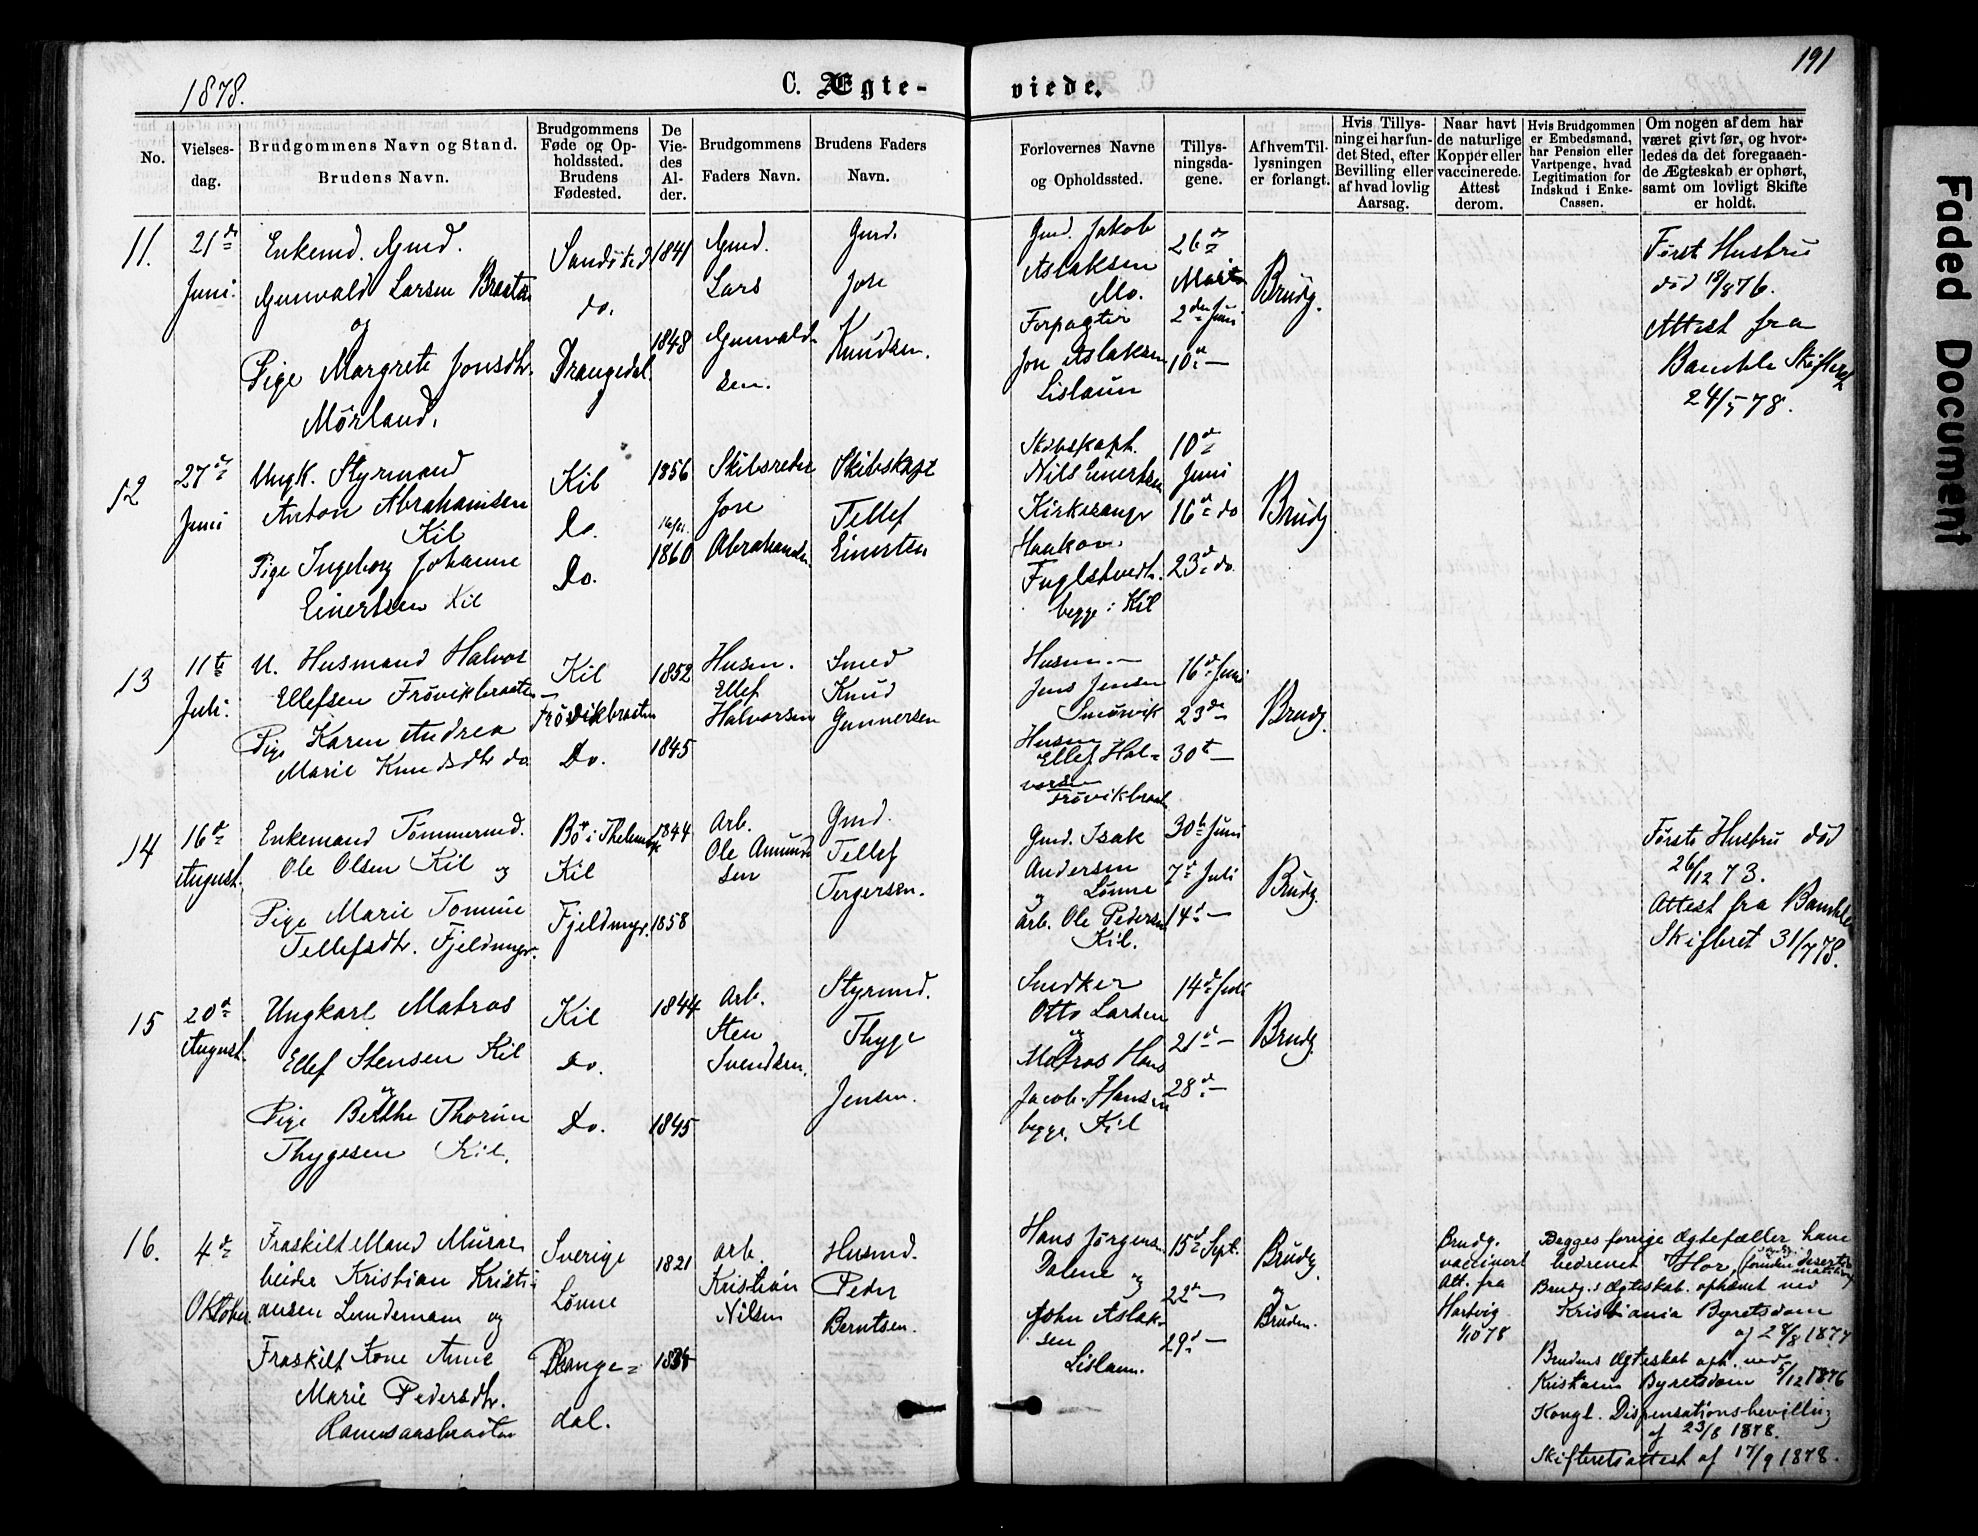 191
1878.
C. Ægte-
viede.
No.
Vielses-
dag.
Brudgommens Navn og Stand.
Brudens Navn.
Brudgommens
Føde og Op-
holdssted.
Brudens
Fødested.
De
Vie-
des
Al-
der.
Brudgommens
Faders Navn.
Brudens Faders
Navn.
Forlovernes Navne
og Opholdssted.
Tillys-
ningsda-
gene.
Af hvem Til-
lysningen
er forlangt.
Hvis Tillys-
ning ei har fun-
det Sted, efter
Bevilling eller
af hvad lovlig
Aarsag.
Naar havt
de naturlige
Kopper eller
vaccinerede.
Attest
derom.
Hvis Brudgommen
er Embedsmand,
har Pension eller
Vartpenge, hvad
Legitimation for
Indskud i Enke-
Cassen.
Om nogen af dem har
været givt før, og hvor-
ledes da det foregaaen-
de Ægteskab er ophørt,
samt om lovligt Skifte
er holdt.
11.
21de
Juni.
Enkemd. Gmd.
Gunvald Larsen Braaten
og
Pige Margrete Jonsdtr.
Mørland.
Sandøked
do.
Drangedal.
1841
1848
Gmd.
Lars
Gunvald-
sen.
Gmd.
Jon
Knudsen.
Gmd. Jakob
Aslaksen
Mo.
Forpagter
Jon Aslaksen
Lislaun
26de
2den Juni
10de —
Brudg.
Først Hustru
død
Attest fra
Bamble Skifteret
24/5 78.
12
27de
Juni
Ungk. Styrmand
Anton Abrahamsen
Kil
Pige Ingeborg Johanne
Einertsen Kil
Kil
Do.
Do.
1856
1860
Skibsreder
Jon
Abrahamsen
Skibskapt
Tellef
Einertsen
Skibskapt.
Nils Einertsen
Kirkesanger
Haakon
Fuglstvedt.
begge: Kil
10de
Juni
16de do
23de do.
Brudg
13
11te
Juli.
U. Husmand Halvor
Ellefsen Frøvikbraaten
Pige Karen Andrea
Marie Knudsdtr do
Kil
Frøvikbraaten
Do.
1852
1845
Husm.
Ellef
Halvorsen
Smed
Knud
Gunnersen
Husm. —
Jens Jensen
Smørvik
Husm
Ellef Hal-
vorsen
Frøvikbraat
16de Juni
23de —
30te —
Brudg.
14
16de
August.
Enkemand Tømmermd.
Ole Olsen Kil og
Pige Marie Tomine
Tellefsdtr. Fjeldmyr.
Bø i Thelemk
Kil
Fjeldmyr.
1844
1858
Arb.
Ole Amund
sen
Gmd.
Tellef
Tergersen.
Gmd. Isak
Andersen
og Lønne
arb. Ole Pedersen
Kil.
30te Juni
7de Juli
14de —
Brudg.
Første Hustru død
26/12 73.
Attest fra Bamble
Skifteret 31/7 78.
15
20de
August.
Ungkarl Matros
Ellef Stensen Kil
og
Pige Berthe Thorine
Thygesen Kil.
Kil
Do.
Do.
1844
1845
Arb.
Sten
Svendsen.
Styrmd.
Thyge
Jensen.
Snedker
Otto Larsen
og
Matros Hans
Jacob Hansen
begge. Kil
14de Juli
21de —
28de —
Brudg.
16.
4de
Oktober
Fraskilt Mand Murar
beider Kristian Kristi-
ansen Lundemann og
Fraskilt Kone Anne
Marie Pedersdtr.
Ramsaasbraaten
Sverige
Lønne
Drange-
dal.
1821
Arb.
Kristian
Nilsen
Husmd.
Peder
Berntsen.
Hans Jørgensen
Dalene og
John Aslak-
sen
Lislaun.
15de Sept.
22de —
29de —
Brudg.
og
Bruden.
Brudg.
vaccinert
Att. fra
Hartvig
Begges forrige Ægtefæller have
bedrevet Hor,
Brudg.s Ægteskab ophævet ved
Kristiania Byretsdom
af 28/8 1877
Brudens Ægteskab oph. ved
Kristiania Byretsdom 5/12 1876
Kongl. Dispensationsbevilling
af 23/8 1878.
Skifteretsattest af 17/9 1878.
Faded Document